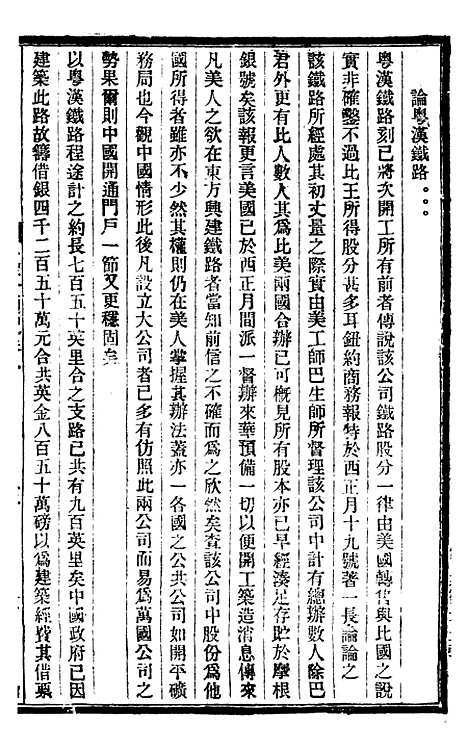 論粤漢鐵路
粤漢鐵路刻已將次開工所有前者傳說該公司鐵路股分一律由美國轉售與比國之說
實非確鑿不過比王所得股分甚多耳鈕約商務報特於西正月十九號著一長論論之
該鐵路所經處其初丈量之際實由美工師巴生師所督理該公司中計有總辦數人除巴
君外更有比人數人其爲比美兩國合辦已可槪見所有股本亦已早經湊足存貯於摩根
銀號矣該報更言美國已於西正月間派一督辦來華預備一切以便開工築造消息傳來
凡美人之欲在東方興建鐵路者當知前信之不確而爲之欣然矣查該公司中股份爲他
國所得者雖亦不少然其權則仍在美人掌握其辦法蓋亦一各國之公共公司如開平礦
務局也今觀中國情形此後凡設立大公司者已多有仿照此兩公司而易爲萬國公司之
勢果爾則中國開通門戶一節又更穩固矣
以粤漢鐵路程途計之約長七百五十英里合之支路已共有九百英里矣中國政府已因
建築此路故籌借銀四千二百五十萬元合共英金八百五十萬磅以爲建築經費其借票